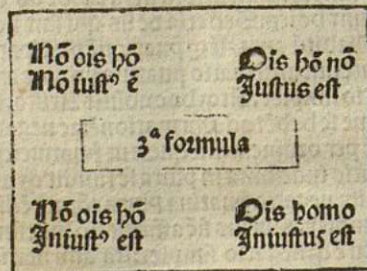 Nõ oīs hõ
Nõ iustꝰ ē
Oīs hõ nõ
Justus est
3ª formula
Nõ oīs hõ
Iniustꝰ est
Oīs homo
Iniustus est